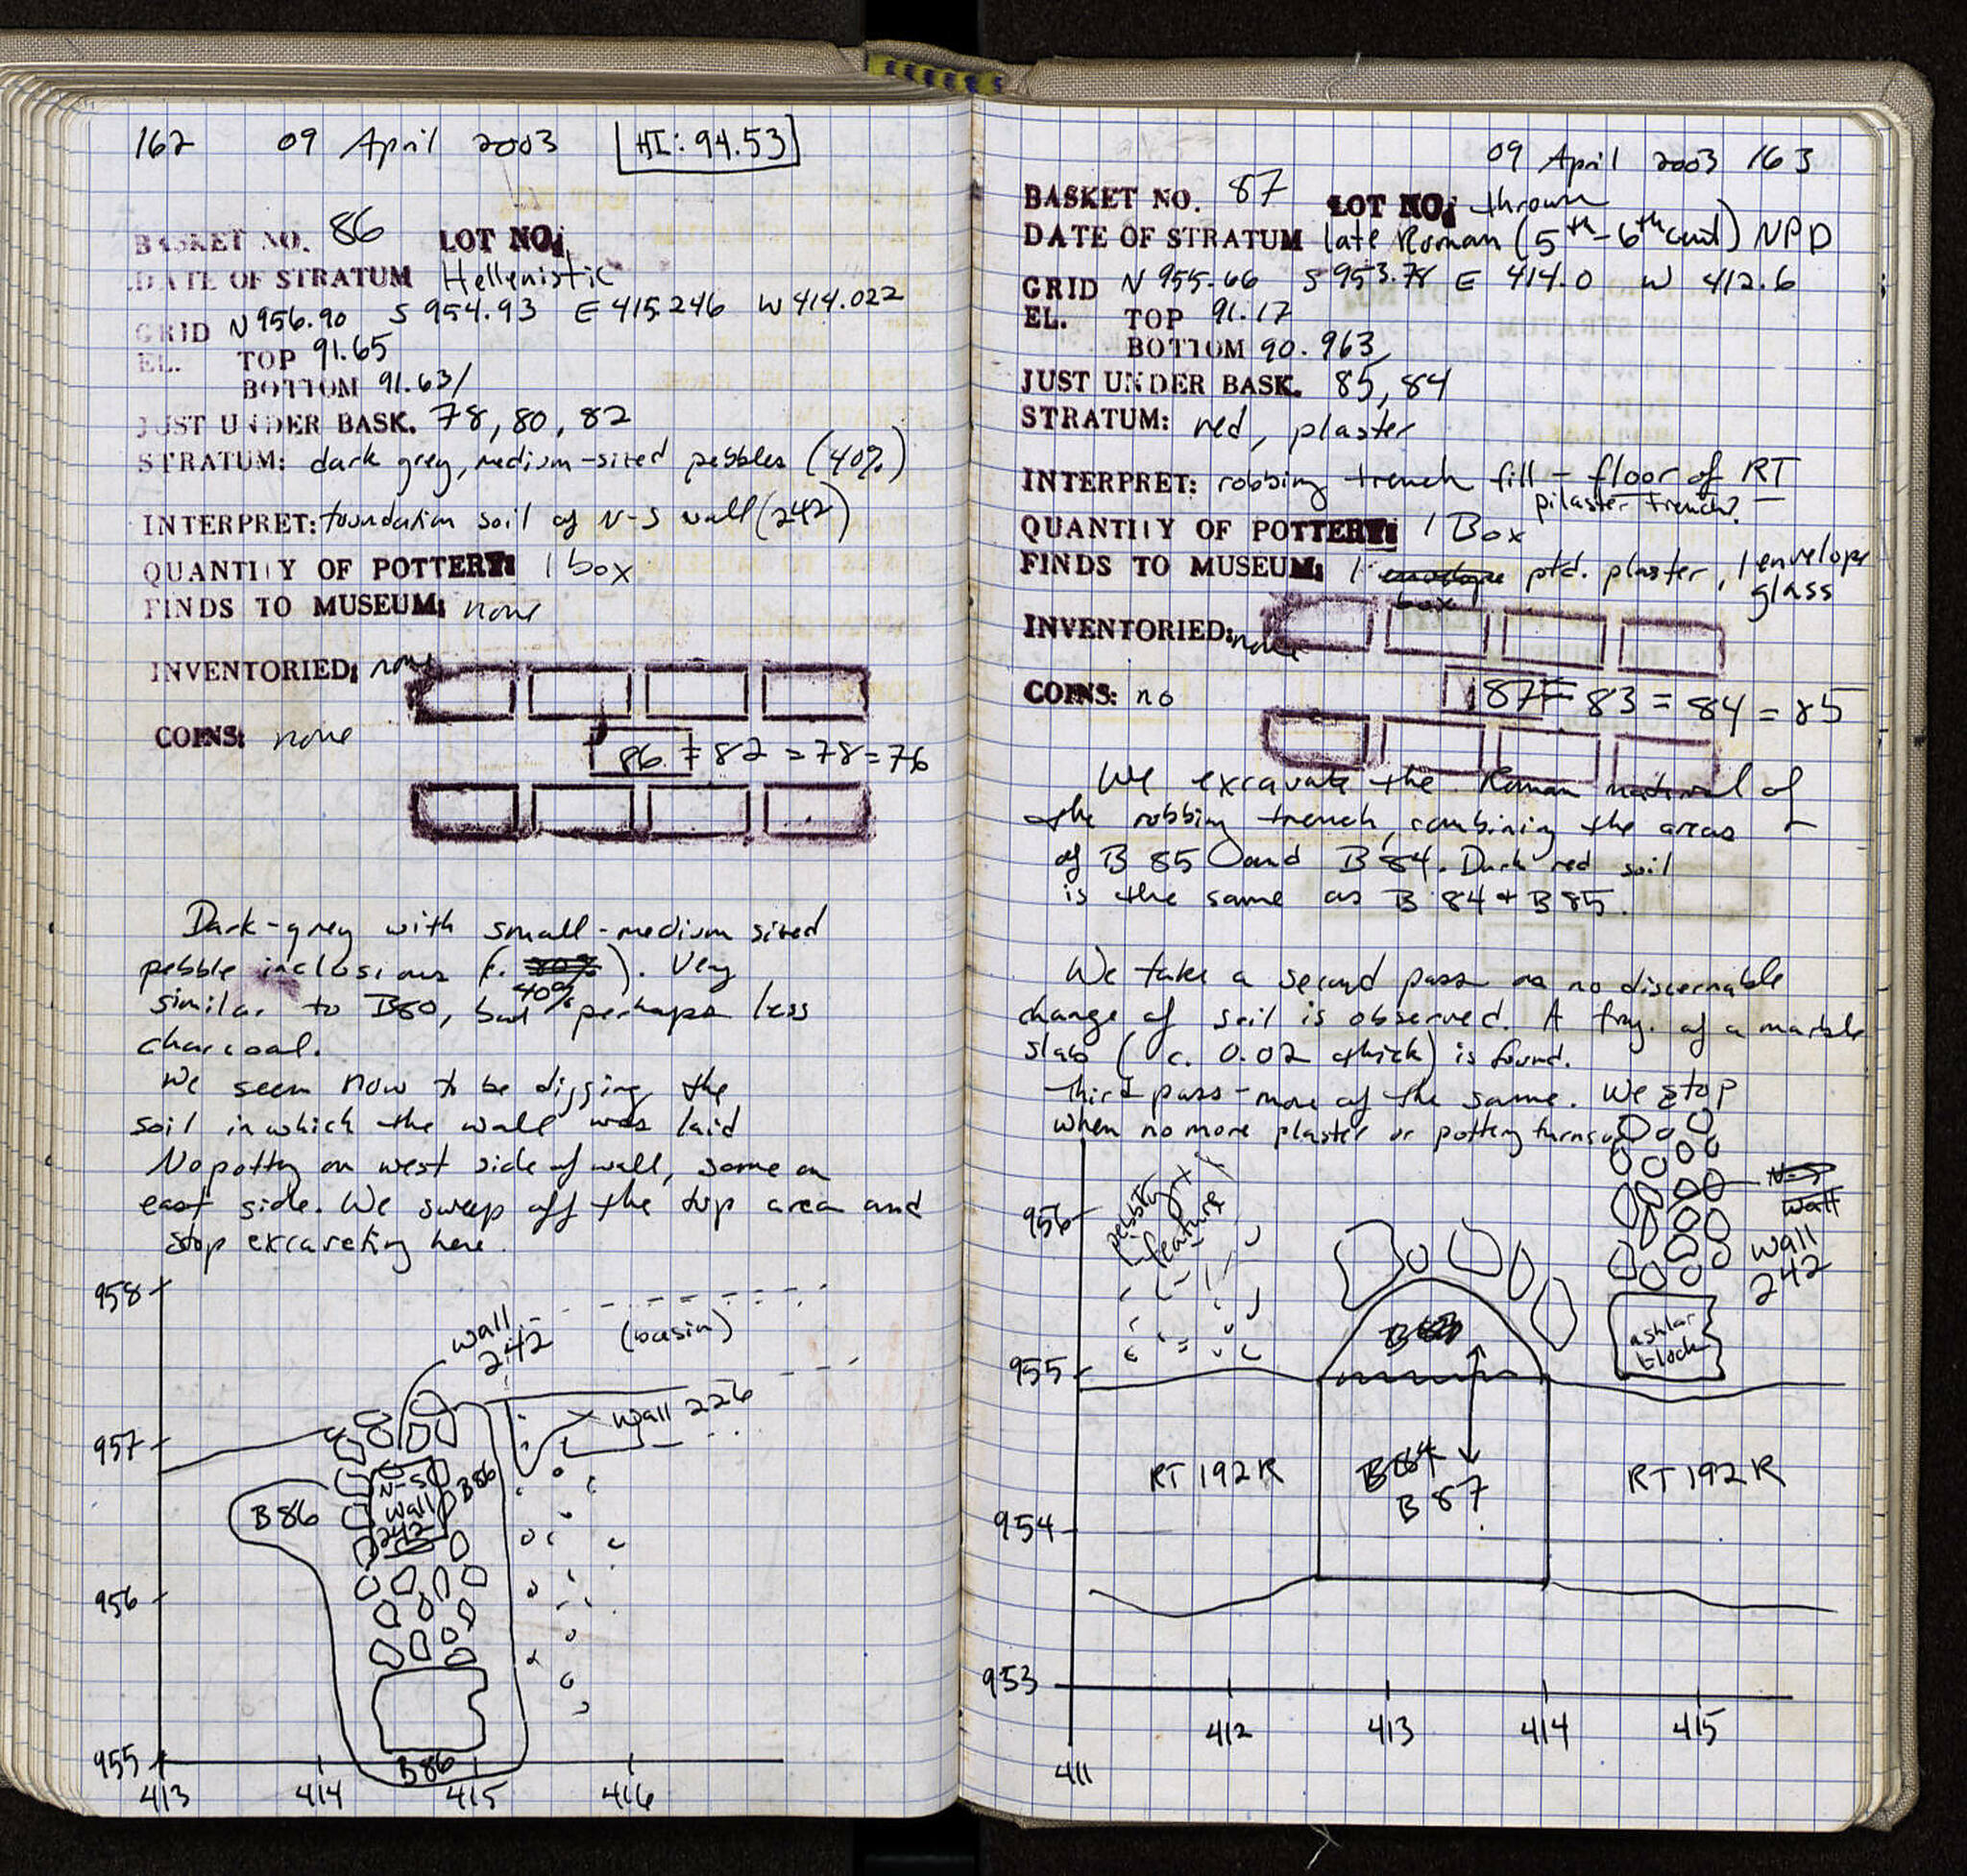 162 09 April 2003 HI: 94.53
BASKET NO. 86 LOT NO.
DATE OF STRATUM Hellenistic
GRID N 956.90 S 954.93 E 415.246 W 414.022
EL. TOP 91.65
BOTTOM 91.631
JUST UNDER BASK. 78, 80, 82
STRATUM: dark grey, medium-sized pebbles (40%)
INTERPRET: foundation soil of N-S wall (242)
QUANTITY OF POTTERY: 1 box
FINDS TO MUSEUM: none
INVENTORIED: none
COINS: none
86 = 82 = 78 = 76
Dark-grey with small-medium sized
pebble inclusions (c. 40%). Very
similar to B80, but perhaps less
charcoal.
We seem now to be digging the
soil in which the wall was laid
No pottery on west side of wall, some on
east side. We sweep off the top area and
stop excavating here.
958
wall 242
(basin)
957
wall 226
B86
N-S wall 242
B86
956
955
B86
413 414 415 416
09 April 2003 163
BASKET NO. 87 LOT NO. thrown
DATE OF STRATUM late Roman (5th-6th cent) NPD
GRID N 955.66 S 953.78 E 414.0 W 412.6
EL. TOP 91.17
BOTTOM 90.963
JUST UNDER BASK. 85, 84
STRATUM: red, plaster
INTERPRET: robbing trench fill - floor of RT
pilaster trench?
QUANTITY OF POTTERY: 1 Box
FINDS TO MUSEUM: 1 envelope box ptd. plaster, 1 envelope
glass
INVENTORIED: none
COINS: no
87 = 83 = 84 = 85
We excavate the Roman material of
the robbing trench, combining the areas
of B 85 and B 84. Dark red soil
is the same as B 84 + B 85.
We take a second pass as no discernable
change of soil is observed. A frag. of a marble
slab (c. 0.02 thick) is found.
Third pass - more of the same. We stop
when no more plaster or pottery turns up
956
pebbly feature
N-S wall
wall 242
ashlar block
955
RT 192R
B84
B 87
RT 192R
954
953
412 413 414 415
411